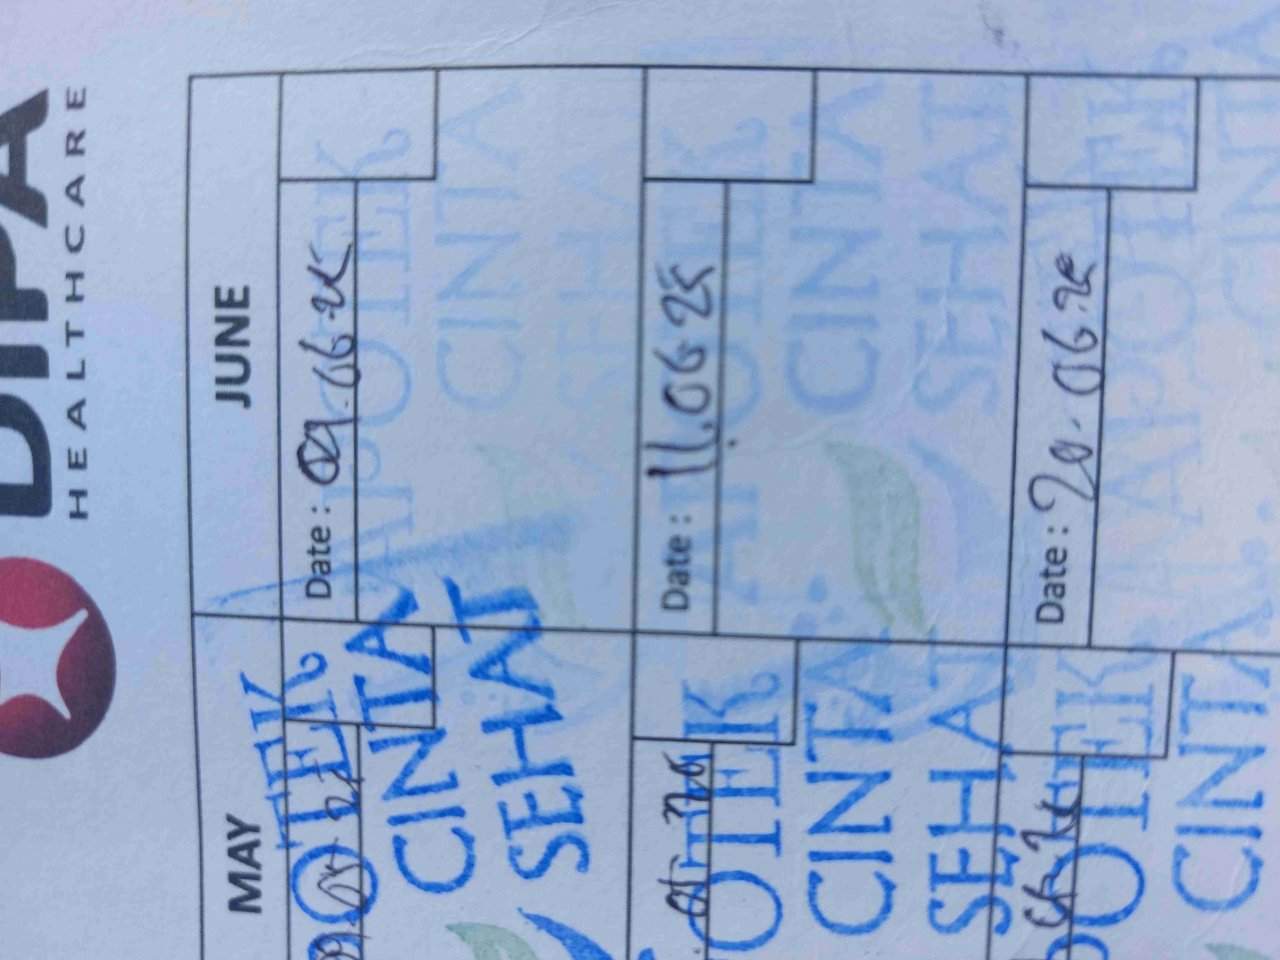 DIPA
HEALTHCARE
MAY
JUNE
OTEK
CINTA
SEHAT
Date : 09.06.25
APOTEK
CINTA
SEHAT
OTEK
CINTA
SEHAT
Date : 11.06.25
APOTEK
CINTA
SEHAT
POTEK
CINTA
Date : 20.06.25
APOTEK
CINTA